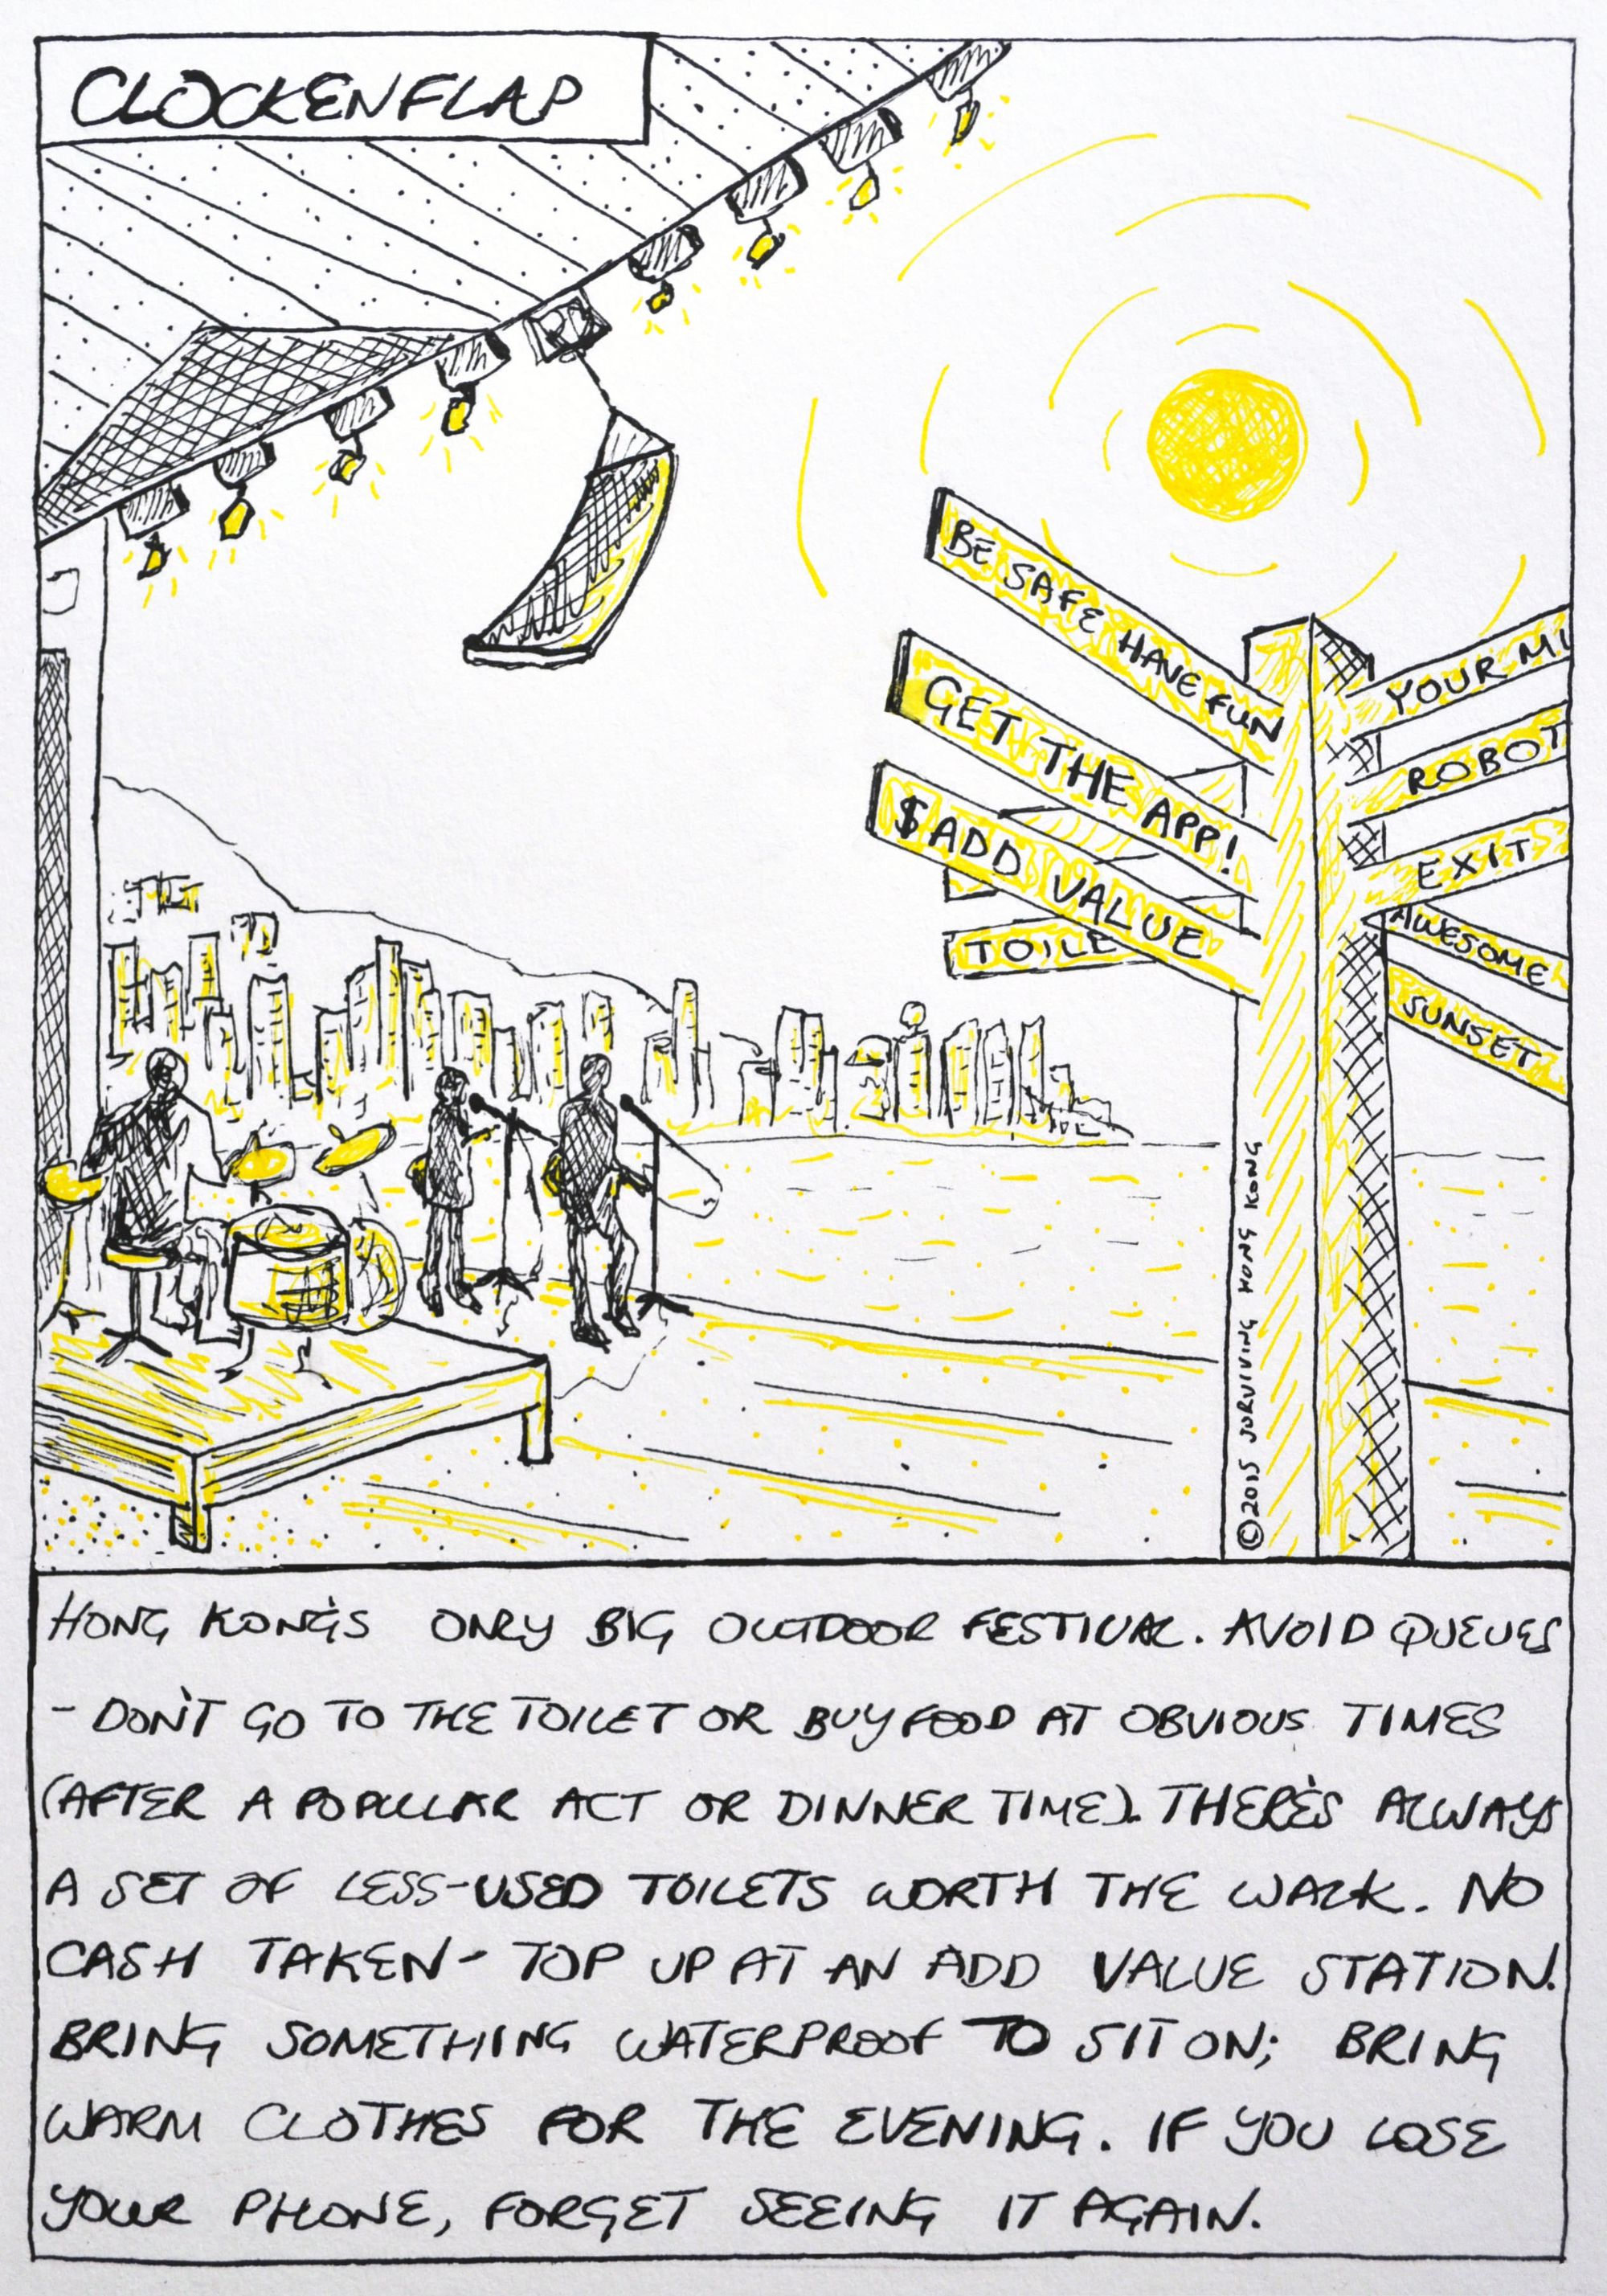 CLOCKENFLAP
BE SAFE HAVE FUN
GET THE APP!
$ADD VALUE
TOILE
YOUR MI
ROBOT
EXIT
AWESOME
SUNSET
©2015 SURVIVING HONG KONG
HONG KONG'S ONLY BIG OUTDOOR FESTIVAL. AVOID QUEUES
- DON'T GO TO THE TOILET OR BUY FOOD AT OBVIOUS TIMES
(AFTER A POPULAR ACT OR DINNER TIME). THERE'S ALWAYS
A SET OF LESS-USED TOILETS WORTH THE WALK. NO
CASH TAKEN - TOP UP AT AN ADD VALUE STATION.
BRING SOMETHING WATERPROOF TO SIT ON; BRING
WARM CLOTHES FOR THE EVENING. IF YOU LOSE
YOUR PHONE, FORGET SEEING IT AGAIN.